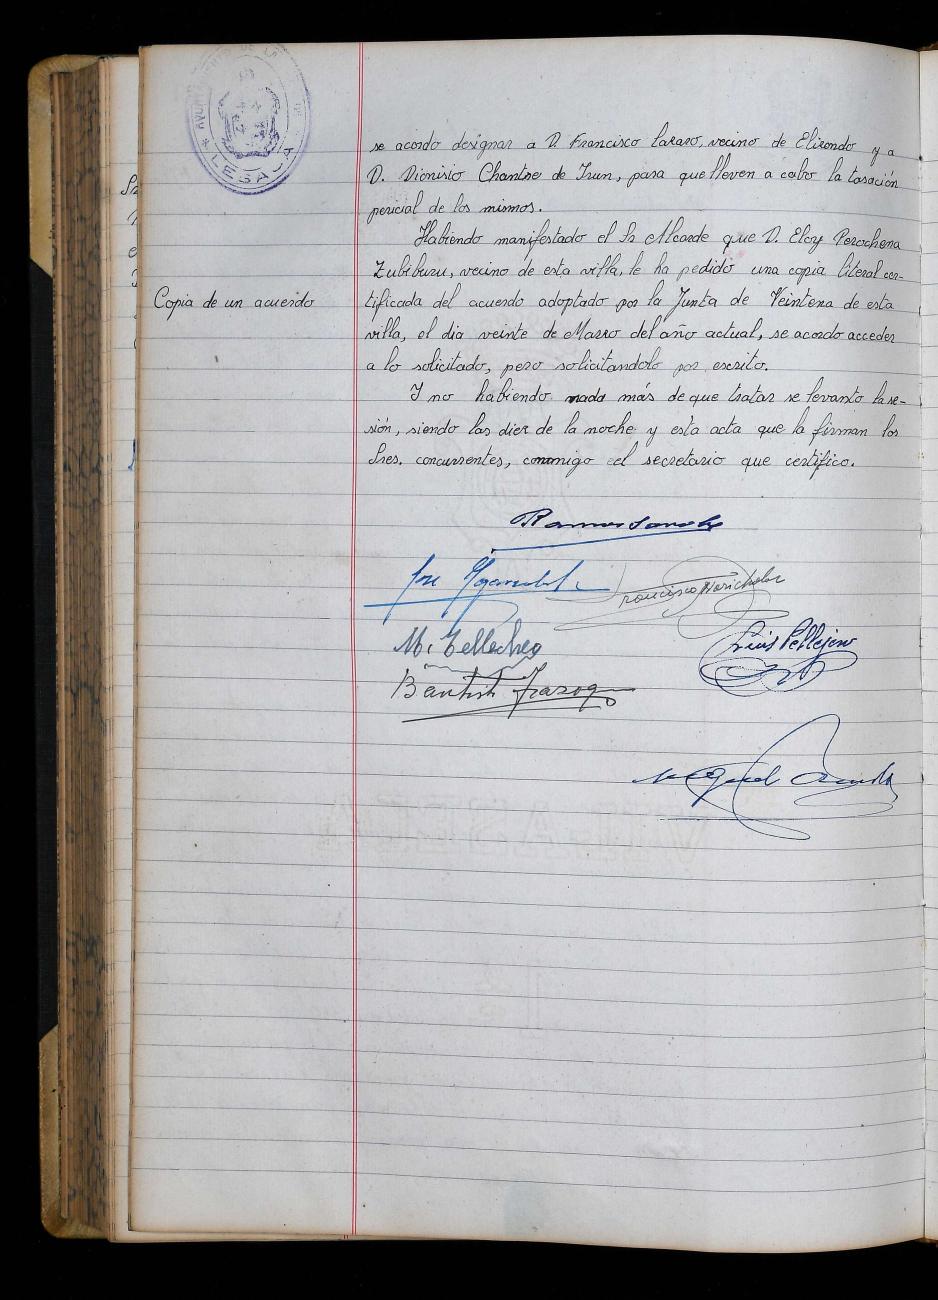 AYUNTAMIENTO DE LA
LESACA
se acordo designar a D. Francisco Lararo, vecino de Elirondo y a
D. Dionisio Chantre de Irun, para que lleven a cabo la tasación
pericial de los mismos.
Habiendo manifestado el Sr Alcarde que D. Eloy Perochena
Zubiburu, vecino de esta villa, le ha pedido una copia literal cer-
Copia de un acuerdo
tificada del acuerdo adoptado por la Junta de Veintena de esta
villa, el dia veinte de Marzo del año actual, se acordo acceder
a lo solicitado, pero solicitandolo por escrito.
Y no habiendo nada más de que tratar se levanto la se-
sión, siendo las diez de la noche y esta acta que la firman los
Sres. concurrentes, conmigo el secretario que certifico.
José
Francisco
M. Tellechea
Luis Pellejero
Bautista
Miguel